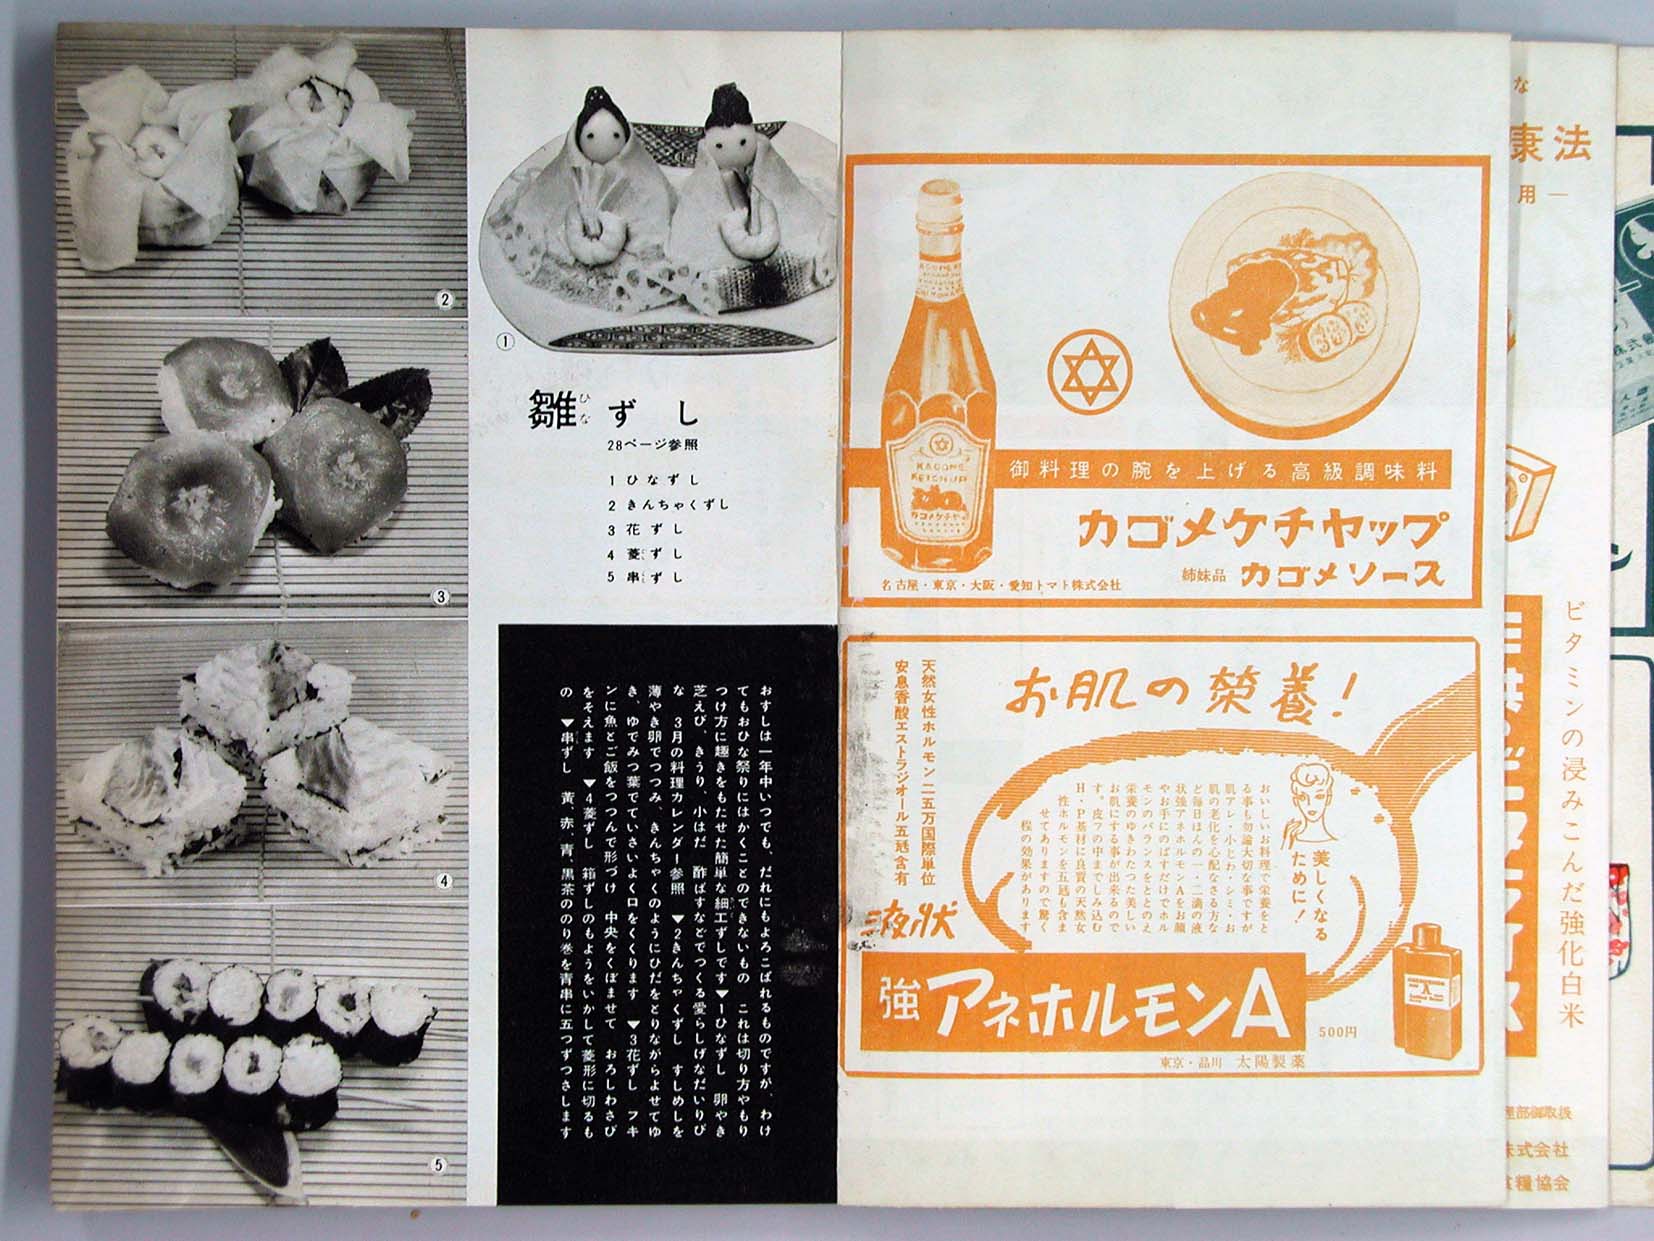 雛ずし
ひな
28ページ参照
1 ひなずし
2 きんちゃくずし
3 花ずし
4 菱ずし
5 串ずし
①
②
③
④
⑤
おすしは一年中いつでも、だれにもよろこばれるものですが、わけ
てもおひな祭りにはかくことのできないもの　これは切り方やもり
つけ方に趣きをもたせた簡単な細工ずしです▼1ひなずし　卵やき
芝えび、きうり、小はだ　酢ばすなどでつくる愛らしげなだいりび
な　3月の料理カレンダー参照　▼2きんちゃくずし　すしめしを
薄やき卵でつつみ、きんちゃくのようにひだをとりながらよせてゆ
き、ゆでみつ葉でていさいよく口をくくります　▼3花ずし　フキ
ンに魚とご飯をつつんで形づけ　中央をくぼませて　おろしわさび
をそえます　▼4菱ずし　箱ずしのもようをいかして菱形に切るも
の　▼串ずし　黄、赤、青、黒茶ののり巻を青串に五つずつさします
KAGOME
KETCHUP
カゴメケチャップ
御料理の腕を上げる高級調味料
カゴメケチャップ
姉妹品 カゴメソース
名古屋・東京・大阪・愛知トマト株式会社
お肌の栄養!
天然女性ホルモン二五万国際単位
安息香酸エストラジオール五瓱含有
美しくなる
ために!
おいしいお料理で栄養をと
る事も勿論大切な事ですが
肌アレ・小じわ・シミ・お
肌の老化を心配なさる方な
ど毎日ほんの一・二滴の液
状強アネホルモンAをお顔
やお手にのばすだけでホル
モンのバランスをととのえ
栄養のゆきわたつた美しい
お肌にする事が出来るので
す。皮フの中までしみ込む
H・P基材に良質の天然女
性ホルモンを五瓱も含ま
せてありますので驚く
程の効果があります
液状
強アネホルモンA
500円
東京・品川 太陽製薬
な
康法
用―
ビタミンの浸みこんだ強化白米
理部御取扱
株式会社
食糧協会